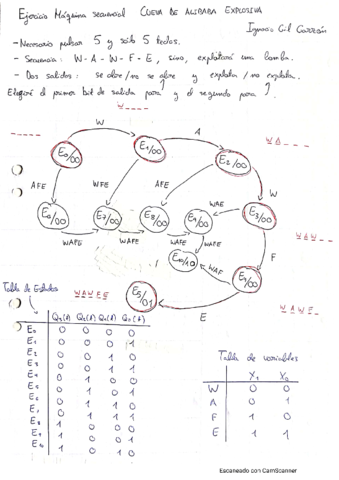 Ejercicio Máquina secuencial CUEVA DE ALIBABA EXPLOSIVA
Ignacio Gil
- Necesario pulsar 5 y sólo 5 teclas.
- Secuencia: W-A-W-F-E, sino, explotará una bomba.
- Dos salidas: se abre/no se abre y explota/no explota.
Elegiré el primer bit de salida para ? y el segundo para ?
W _ _ _
_ _ _ _ _
W
A
W A _ _ _
E0/00
E1/00
E2/00
AFE
WFE
AFE
W
WAE
E7/00
E8/00
E3/00
WAFE
WAFE
WAFE
WAFE
WAW _ _
F
E10/10
WAF
Tabla de Estados
WAWFE
E5/01
E
WAWF _
E0 0 0 0 0
E1 0 0 0 1
E2 0 0 1 0
E3 0 0 1 1
E4 0 1 0 0
E5 0 1 0 1
0 1 1 0
0 1 1 1
1 0 0 0
1 0 0 1
1 0 1 0
Tabla de variables
X1 X0
W 0 0
A 0 1
F 1 0
E 1 1
Escaneado con CamScanner